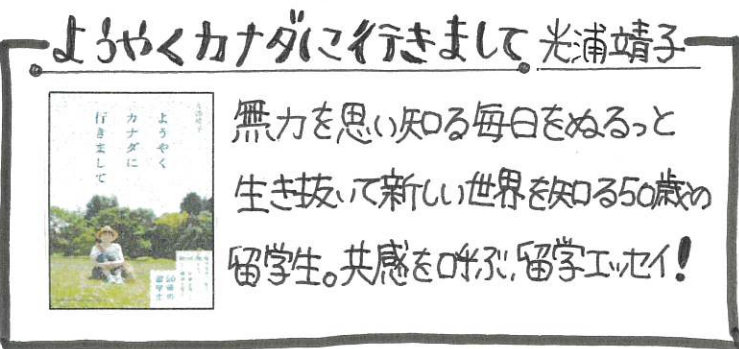 ようやくカナダに行きまして 光浦靖子
ようやく
カナダに
行きまして
光浦靖子
50歳の
留学生
無力を思い知る毎日をぬるっと
生き抜いて新しい世界を知る50歳の
留学生。共感を呼ぶ、留学エッセイ!